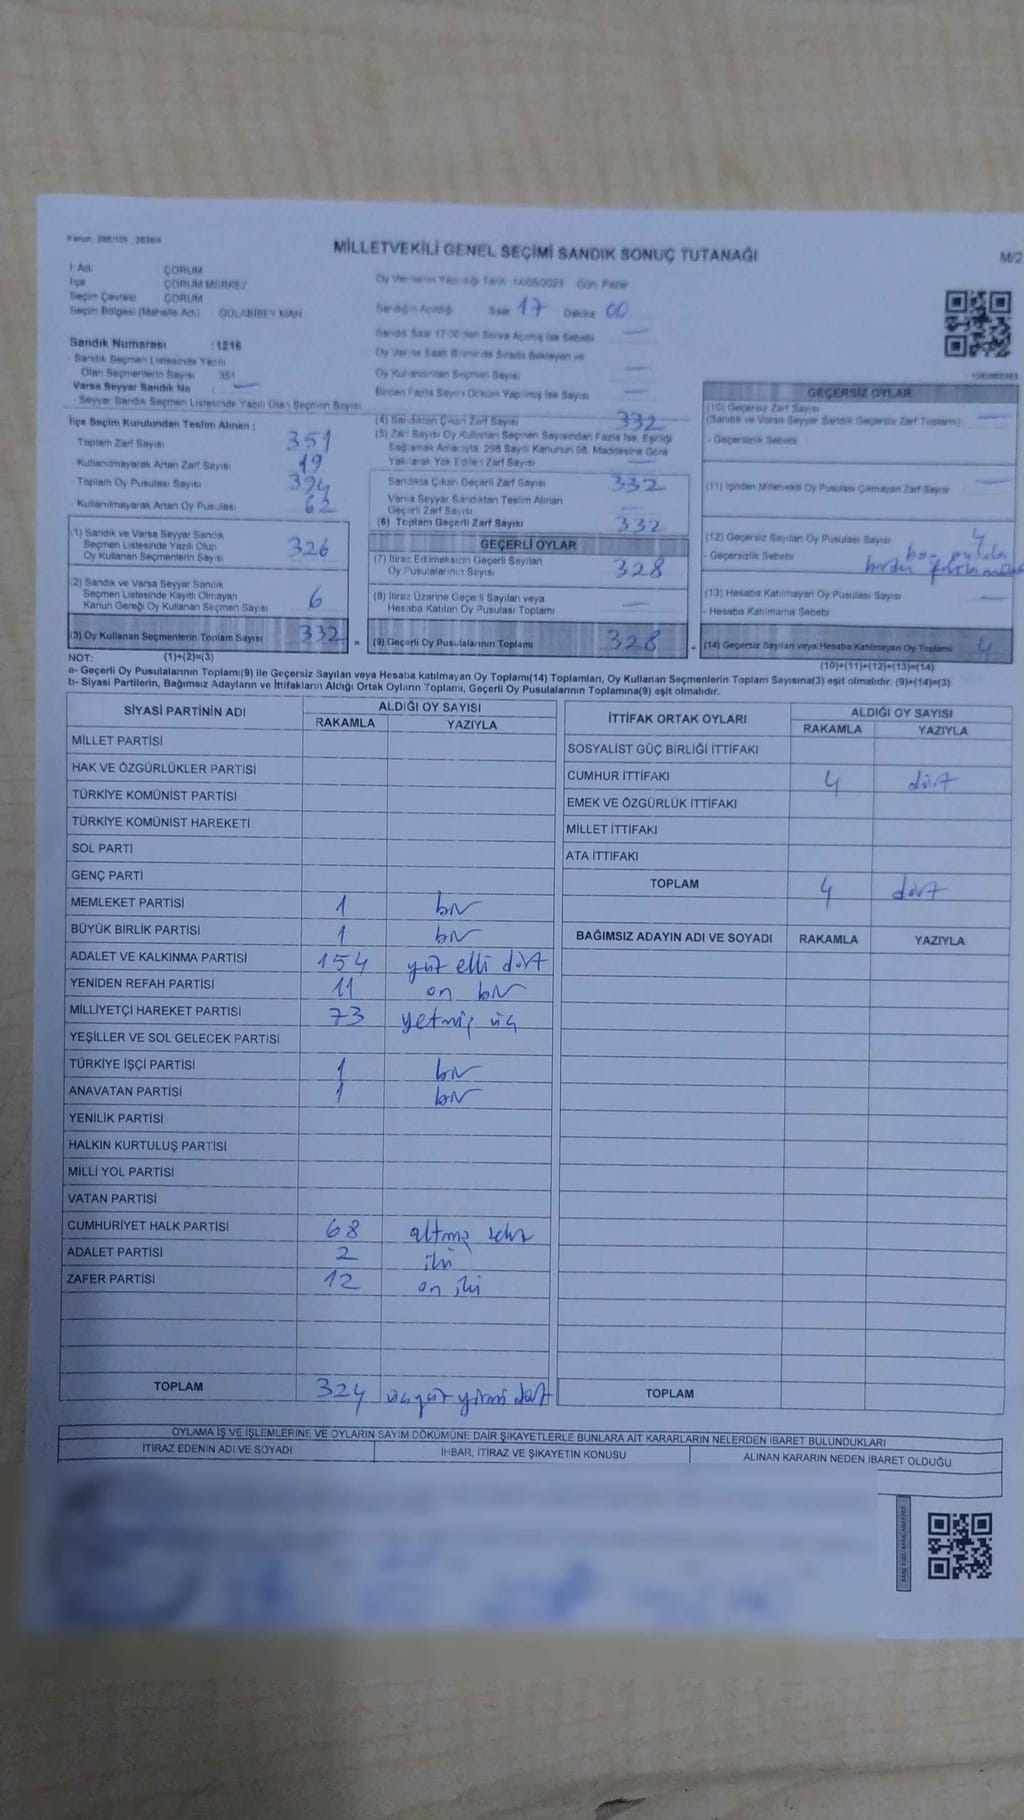 MİLLETVEKİLİ GENEL SEÇİMİ SANDIK SONUÇ TUTANAĞI
M/2
İl Adı : ÇORUM
İlçe : ÇORUM MERKEZ
Seçim Çevresi : ÇORUM
Seçim Bölgesi (Mahalle Adı) : GÜLABİBEY MAH
Sandık Numarası :1216
- Sandık Seçmen Listesinde Yazılı
Olan Seçmenlerin Sayısı : 351
Varsa Seyyar Sandık No : —
Seyyar Sandık Seçmen Listesinde Yazılı Olan Seçmen Sayısı
Oy Vermenin Yapıldığı Tarih : 14/05/2023 Gün: Pazar
Sandığın Açıldığı Saat 17 Dakika 00
Sandık Saat 17:00'den Sonra Açılmış İse Sebebi —
Oy Verme Saati Bitiminde Sırada Bekleyen ve
Oy Kullandırılan Seçmen Sayısı —
Birden Fazla Sayım Döküm Yapılmış İse Sayısı —
İlçe Seçim Kurulundan Teslim Alınan ;
Toplam Zarf Sayısı 351
Kullanılmayarak Artan Zarf Sayısı 19
- Toplam Oy Pusulası Sayısı 394
Kullanılmayarak Artan Oy Pusulası 62
(1) Sandık ve Varsa Seyyar Sandık
Seçmen Listesinde Yazılı Olup
Oy Kullanan Seçmenlerin Sayısı 326
(2) Sandık ve Varsa Seyyar Sandık
Seçmen Listesinde Kayıtlı Olmayan
Kanun Gereği Oy Kullanan Seçmen Sayısı 6
(3) Oy Kullanan Seçmenlerin Toplam Sayısı 332 =
(4) Sandıktan Çıkan Zarf Sayısı 332
(5) Zarf Sayısı Oy Kullanan Seçmen Sayısından Fazla İse, Eşitliği
Sağlamak Amacıyla, 298 Sayılı Kanunun 98. Maddesine Göre
Yakılarak Yok Edilen Zarf Sayısı —
Sandıkta Çıkan Geçerli Zarf Sayısı 332
Varsa Seyyar Sandıktan Teslim Alınan
Geçerli Zarf Sayısı —
(6) Toplam Geçerli Zarf Sayısı 332
GEÇERLİ OYLAR
(7) İtiraz Edilmeksizin Geçerli Sayılan
Oy Pusulalarının Sayısı 328
(8) İtiraz Üzerine Geçerli Sayılan veya
Hesaba Katılan Oy Pusulası Toplamı —
(9) Geçerli Oy Pusulalarının Toplamı 328 +
GEÇERSİZ OYLAR
(10) Geçersiz Zarf Sayısı
(Sandık ve Varsa Seyyar Sandık Geçersiz Zarf Toplamı) —
- Geçersizlik Sebebi
(11) İçinden Milletvekili Oy Pusulası Çıkmayan Zarf Sayısı —
(12) Geçersiz Sayılan Oy Pusulası Sayısı 4
- Geçersizlik Sebebi boş pusula
birden
(13) Hesaba Katılmayan Oy Pusulası Sayısı —
- Hesaba Katılmama Sebebi
(14) Geçersiz Sayılan veya Hesaba Katılmayan Oy Toplamı 4
NOT: (1)+(2)=(3)
(10)+(11)+(12)+(13)=(14)
a- Geçerli Oy Pusulalarının Toplamı(9) ile Geçersiz Sayılan veya Hesaba katılmayan Oy Toplamı(14) Toplamları, Oy Kullanan Seçmenlerin Toplam Sayısına(3) eşit olmalıdır. (9)+(14)=(3)
b- Siyasi Partilerin, Bağımsız Adayların ve İttifakların Aldığı Ortak Oyların Toplamı, Geçerli Oy Pusulalarının Toplamına(9) eşit olmalıdır.
SİYASİ PARTİNİN ADI ALDIĞI OY SAYISI
RAKAMLA YAZIYLA
MİLLET PARTİSİ
HAK VE ÖZGÜRLÜKLER PARTİSİ
TÜRKİYE KOMÜNİST PARTİSİ
TÜRKİYE KOMÜNİST HAREKETİ
SOL PARTİ
GENÇ PARTİ
MEMLEKET PARTİSİ 1 bir
BÜYÜK BİRLİK PARTİSİ 1 bir
ADALET VE KALKINMA PARTİSİ 154 yüz elli dört
YENİDEN REFAH PARTİSİ 11 on bir
MİLLİYETÇİ HAREKET PARTİSİ 73 yetmiş üç
YEŞİLLER VE SOL GELECEK PARTİSİ
TÜRKİYE İŞÇİ PARTİSİ 1 bir
ANAVATAN PARTİSİ 1 bir
YENİLİK PARTİSİ
HALKIN KURTULUŞ PARTİSİ
MİLLİ YOL PARTİSİ
VATAN PARTİSİ
CUMHURİYET HALK PARTİSİ 68 altmış sekiz
ADALET PARTİSİ 2 iki
ZAFER PARTİSİ 12 on iki
TOPLAM 324 üçyüz yirmi dört
İTTİFAK ORTAK OYLARI ALDIĞI OY SAYISI
RAKAMLA YAZIYLA
SOSYALİST GÜÇ BİRLİĞİ İTTİFAKI
CUMHUR İTTİFAKI 4 dört
EMEK VE ÖZGÜRLÜK İTTİFAKI
MİLLET İTTİFAKI
ATA İTTİFAKI
TOPLAM 4 dört
BAĞIMSIZ ADAYIN ADI VE SOYADI RAKAMLA YAZIYLA
TOPLAM
OYLAMA İŞ VE İŞLEMLERİNE VE OYLARIN SAYIM DÖKÜMÜNE DAİR ŞİKAYETLERLE BUNLARA AİT KARARLARIN NELERDEN İBARET BULUNDUKLARI
İTİRAZ EDENİN ADI VE SOYADI İHBAR, İTİRAZ VE ŞİKAYETİN KONUSU ALINAN KARARIN NEDEN İBARET OLDUĞU